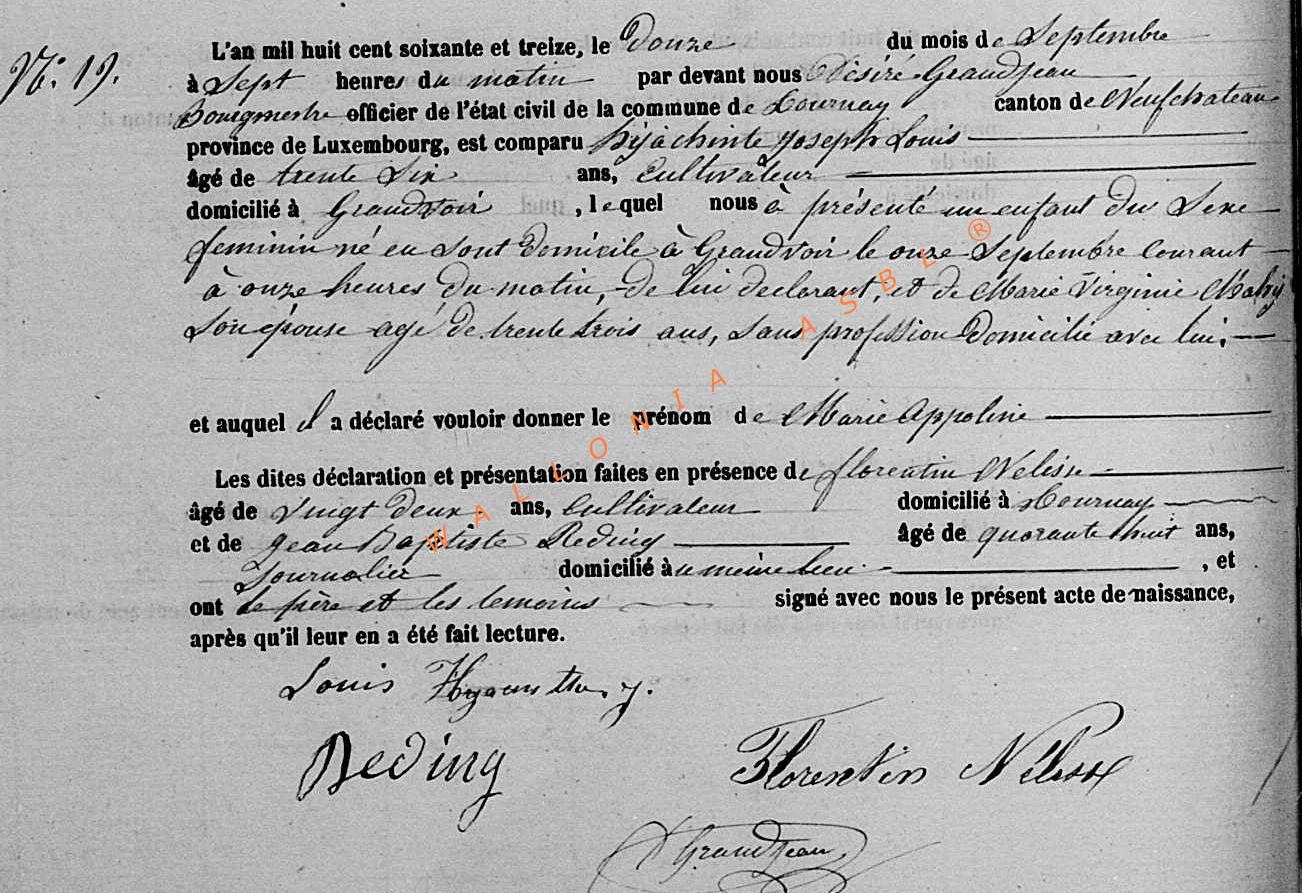 N: 19.
L'an mil huit cent soixante et treize, le Douze du mois de Septembre
à Sept heures du matin par devant nous Désiré Grandjean
Bourgmestre officier de l'état civil de la commune de Tournay canton de Neufchateau
province de Luxembourg, est comparu hyachinte Joseph Louis
âgé de trente Six ans, Cultivateur
domicilié à Grandvoir, lequel nous à présenté un enfant du Sexe
feminin né en sont Domicile à Grandvoir le onze Septembre Courant
à onze heures du matin, de lui declarant, et de Marie Virginie Mahy
Son épouse agé de trente trois ans, Sans profession Domicilié avec lui,
et auquel il a déclaré vouloir donner le prénom de Marie Appoline
Les dites déclaration et présentation faites en présence de florentin Nelisse
âgé de Vingt deux ans, Cultivateur domicilié à Tournay
et de Jean Baptiste Reding âgé de quarante huit ans,
Journalier domicilié à u meme lieu, et
ont le père et les temoins signé avec nous le présent acte de naissance,
après qu'il leur en a été fait lecture.
Louis J.
Reding Florentin
Grandjean
WALLONIA ASBL ®